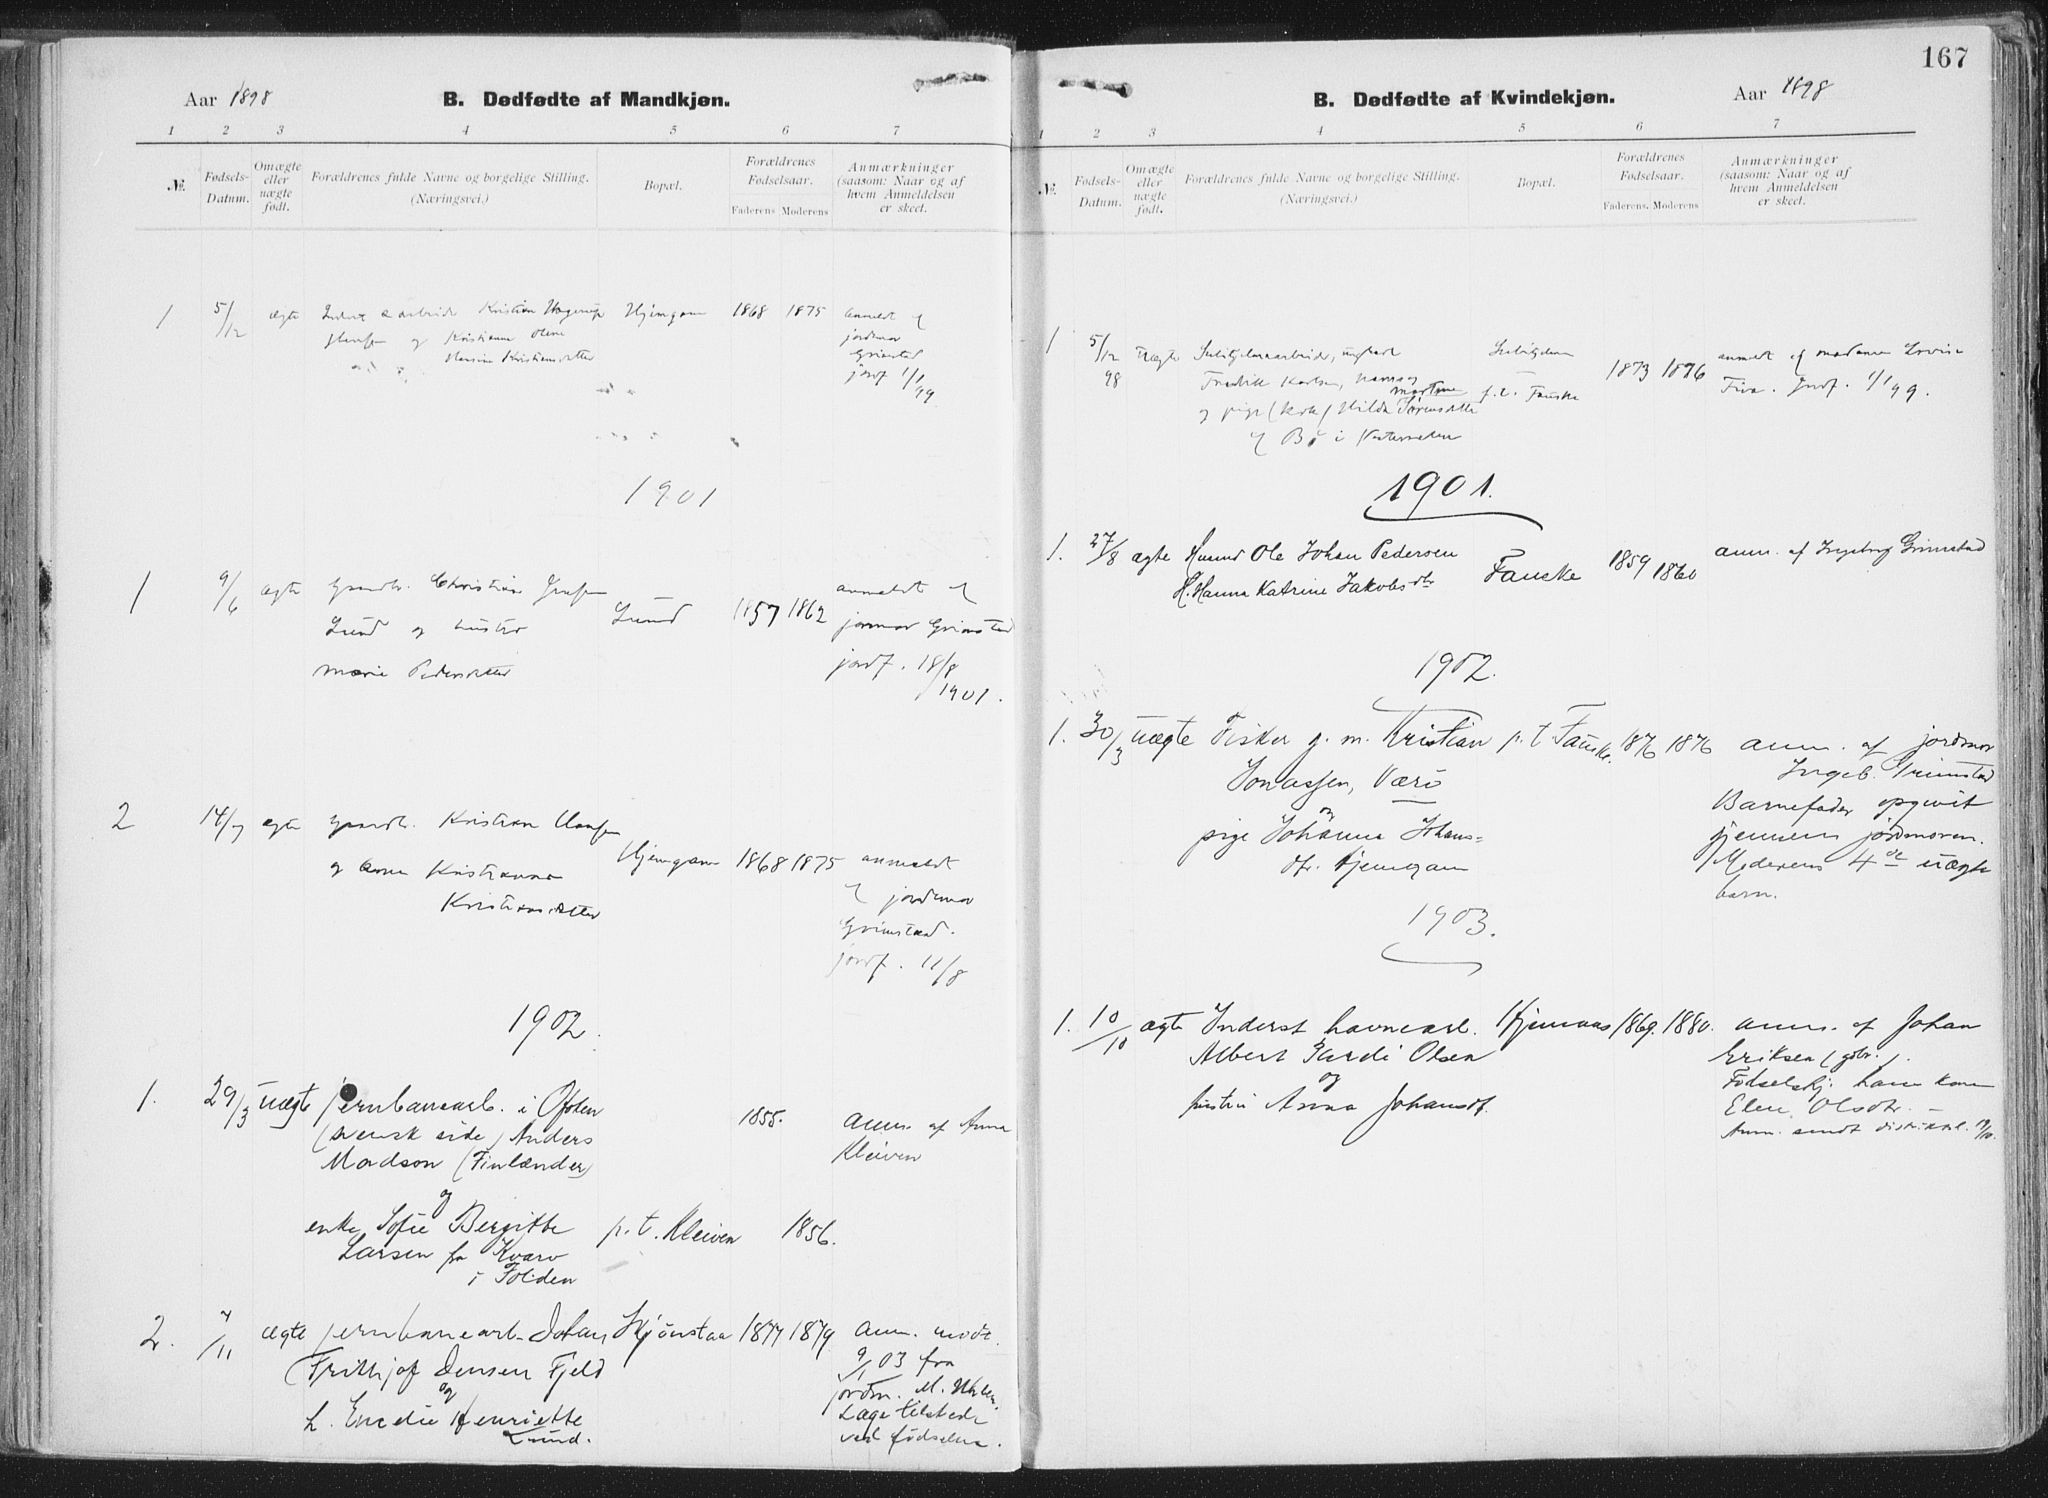 Aar 1898
B. Dødfødte af Mandkjøn.
1 2 3 4 5 6 7
№.
Fødsels-Datum.
Omægte eller uægte født.
Forældrenes fulde Navne og borgelige Stilling.
(Næringsvei.)
Bopæl.
Forældrenes Fødselsaar.
Faderens Moderens
Anmærkninger
(saasom: Naar og af
hvem Anmeldelsen
er skeet.
1 5/12 ægte Kristian Hagerup Hjemgam 1868 1875 anmeldt
og Kristiane Oline jordmor
Hansine Kristiansdatter Grimstad
jordf 1/1 99
1901
1 9/6 ægte Gaardbr. Christian Jensen Lund 1857 1862 anmeldt af
Lund og hustru jormor Grimstad
Marie Pedersdatter jordf. 18/8
1901.
2 14/7 ægte Gaardbr. Kristian Hansen Hjemgam 1868 1875 anmeldt
og Kristianna af jordmor
Kristiansdatter Grimstad.
jordf. 11/8
1902.
1. 29/3 uægte jernbanearb. i Ofoten 1855. anm. af Anna
(svensk side) Anders Kleiven
Madson (Finlænder)
og
enke Sofie Bergitte p. t. Kleiven 1856.
Larsen fra Kvarv
i Folden
2. 7/11 ægte jernbanearb. Johan Skjønstaa 1877 1879 anm. modt.
Frithjof Jensen Fjeld 9/1 03 fra
og jordm. M.
h. Emelie Henriette Læge tilstede
Lund. ved fødselen.
167
B. Dødfødte af Kvindekjøn.
Aar 1898
1 2 3 4 5 6 7
№.
Fødsels-Datum.
Omægte eller uægte født.
Forældrenes fulde Navne og borgelige Stilling.
(Næringsvei.)
Bopæl.
Forældrenes Fødselsaar.
Faderens. Moderens
Anmærkninger
(saasom: Naar og af
hvem Anmeldelsen
er skeet.
1 5/12 98 uægte Sulitjelmaarbeider, ungkarl Sulitjelma 1873 1876 anmeldt af madame Lovise
Fredrik Karlsen, p. t. Fauske Jordf. 1/1 99.
og pige Hilda Martine Sørensdatter
af Bø i Vesteraalen
1901.
1. 27/8 ægte Husmd Ole Johan Pedersen Fauske 1859 1860 anm. af Ingeborg Grimstad
H. Hanna Katrine Jakobsdtr
1902.
1. 30/3 uægte Fisker g. m. Kristian p. t. Fauske. 1876 1876 anm. af jordmor
Jonassen, Værø Ingeb. Grimstad
og Barnefader opgivit
pige Johanna Johans- gjennem jordmoren.
dtr. Hjemgam Moderens 4de uægte
barn.
1903.
1. 10/10 ægte Inderst havnearb. Hjemaas 1869. 1880. anm. af Johan
Albert Olsen Eriksen (gbr.).
og Fødselshj. hans kone
hustru Anna Johansdt. Elen Olsdtr. –
Anm. sendt distriktsl.